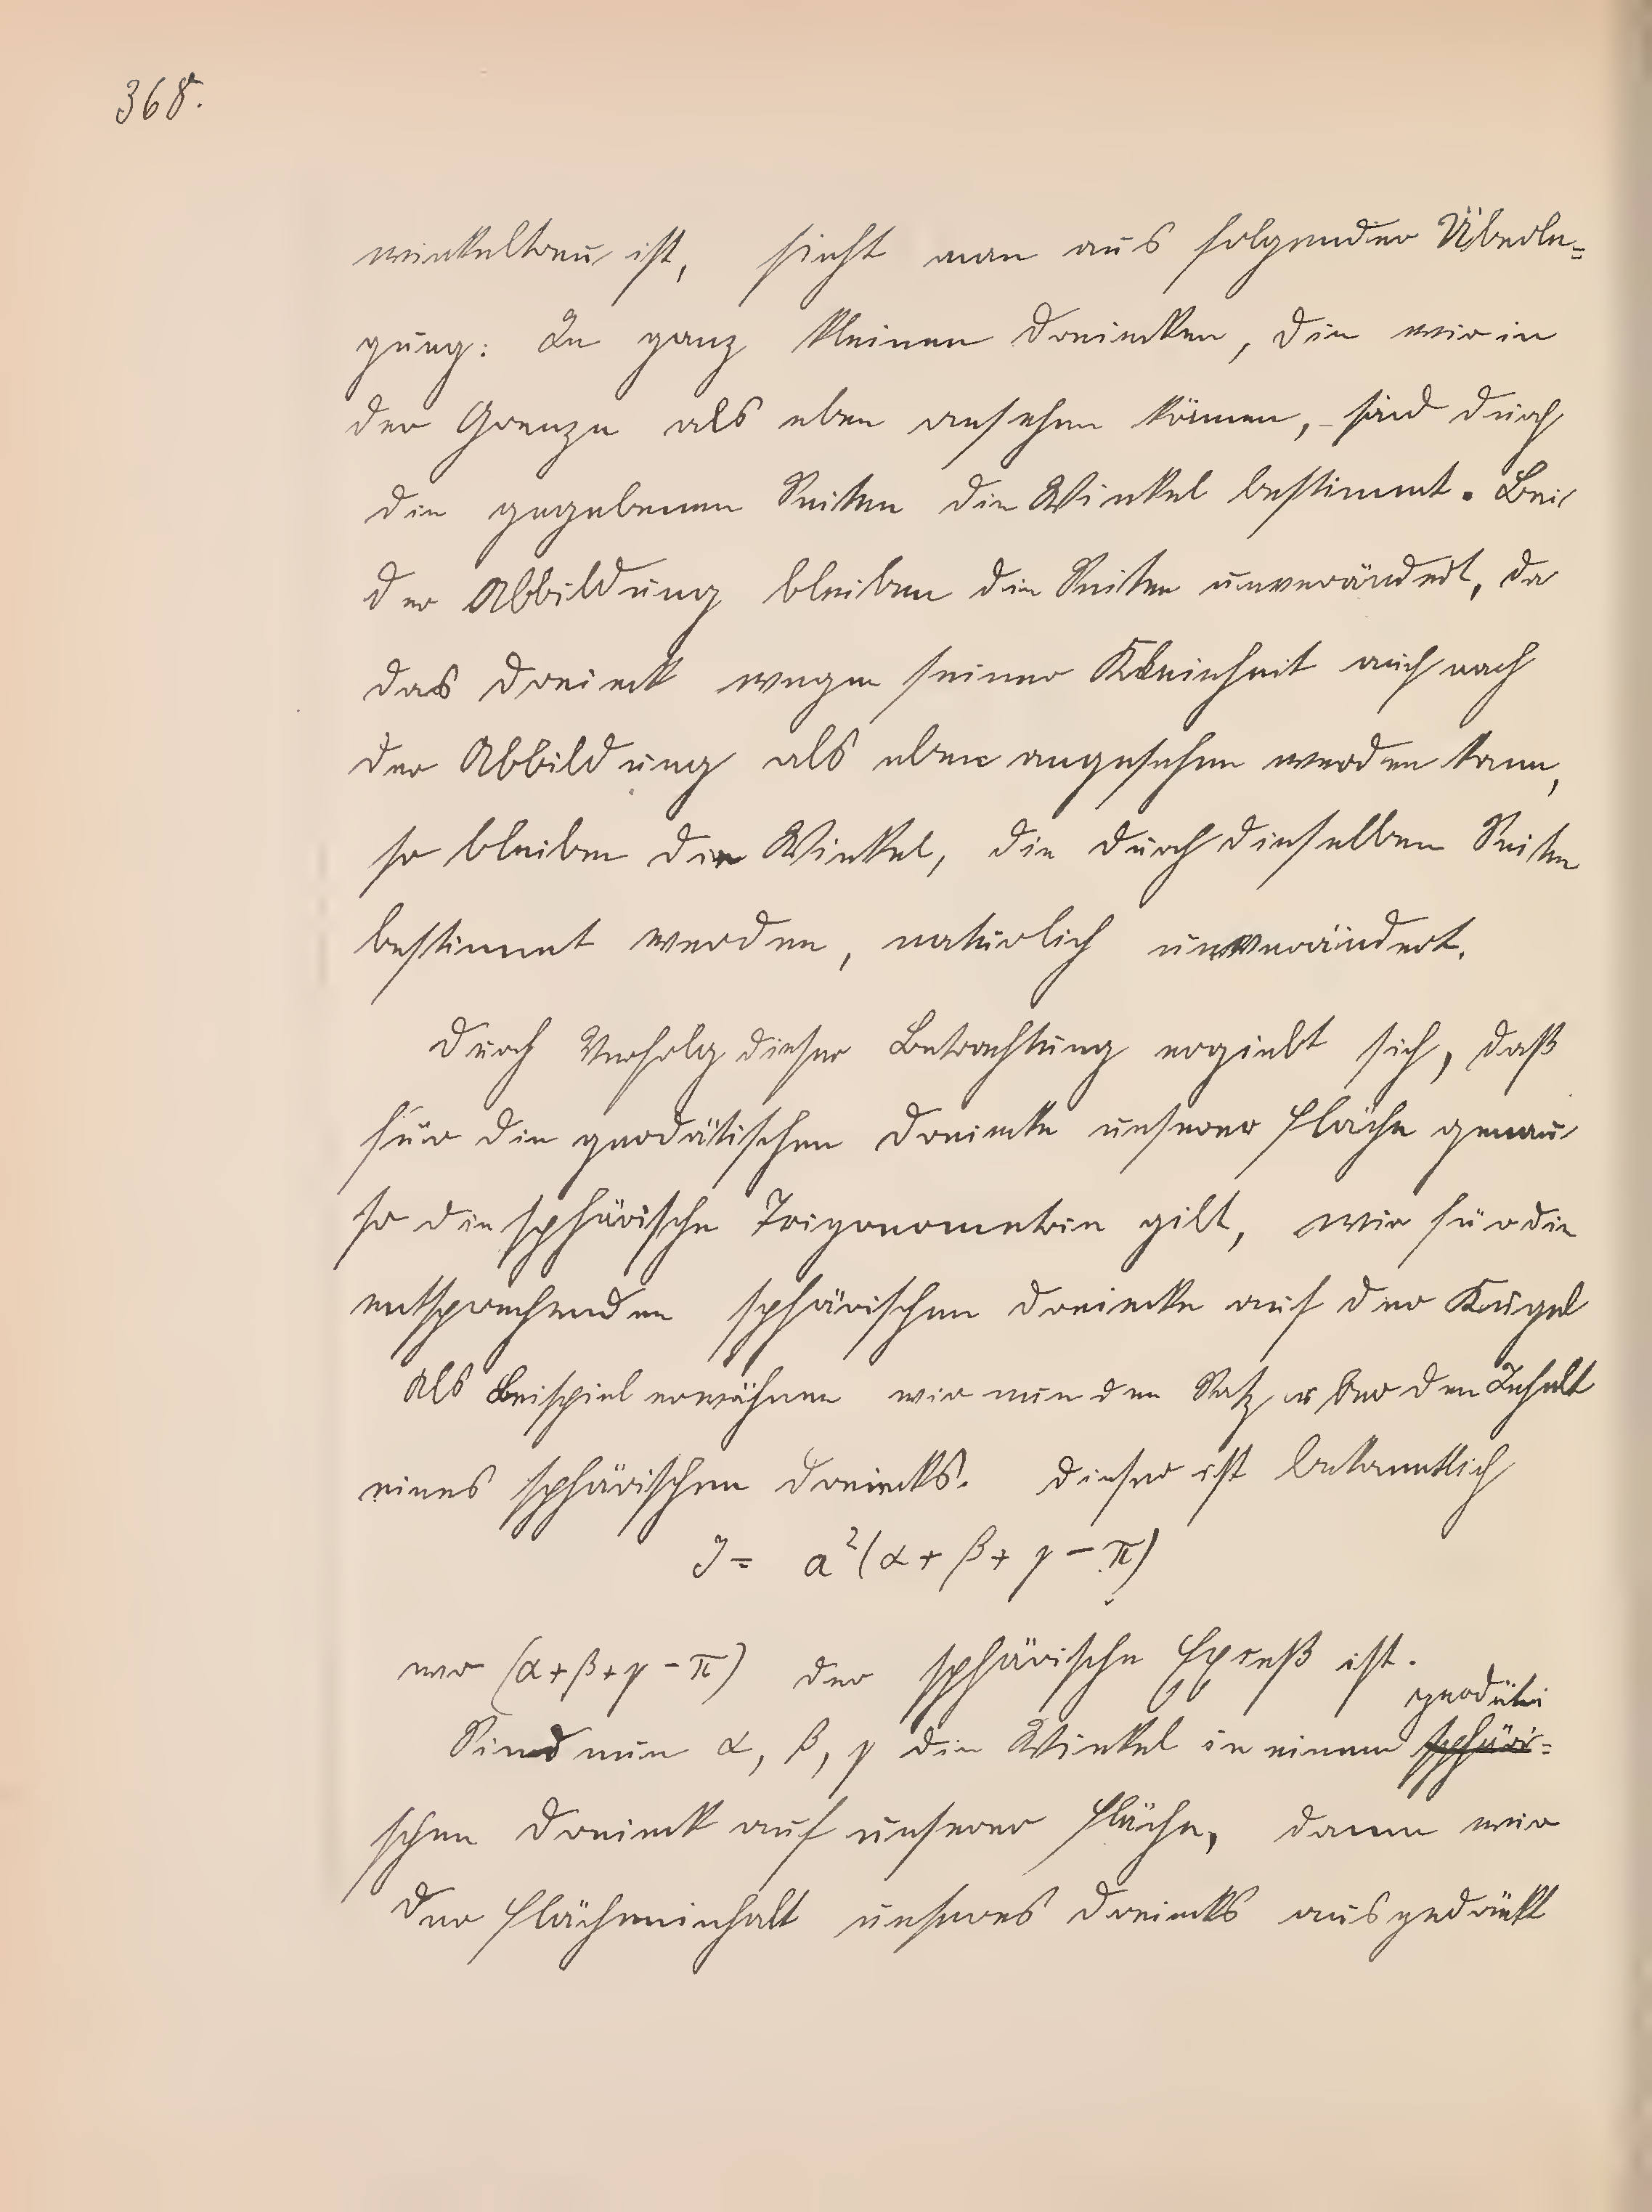 368.
winkeltreu ist, sieht man aus folgender Überle=
gung: In ganz kleinen Dreiecken, die wir in
der Grenze als eben ansehen können, sind durch
die gegebenen Seiten die Winkel bestimmt. Bei
der Abbildung bleiben die Seiten unverändert, da
das Dreieck wegen seiner Kleinheit auch nach
der Abbildung als eben angesehen werden kann,
so bleiben die Winkel, die durch dieselben Seiten
bestimmt werden, natürlich unverändert.
Durch Verfolg dieser Betrachtung ergiebt sich, daß
für die geodätischen Dreiecke unserer Fläche genau
so die sphärische Trigonometrie gilt, wie für die
entsprechenden sphärischen Dreiecke auf der Kugel
Als Beispiel erwähnen wir nun den Satz über den Inhalt
eines sphärischen Dreiecks. Dieser ist bekanntlich
J = a²(α + β + γ − π)
wo (α+β+γ−π) der sphärische Exceß ist.
geodäti
Sind nun α, β, γ die Winkel in einem sphäri=
schen Dreieck auf unserer Fläche, dann wir
der Flächeninhalt unseres Dreiecks ausgedrückt